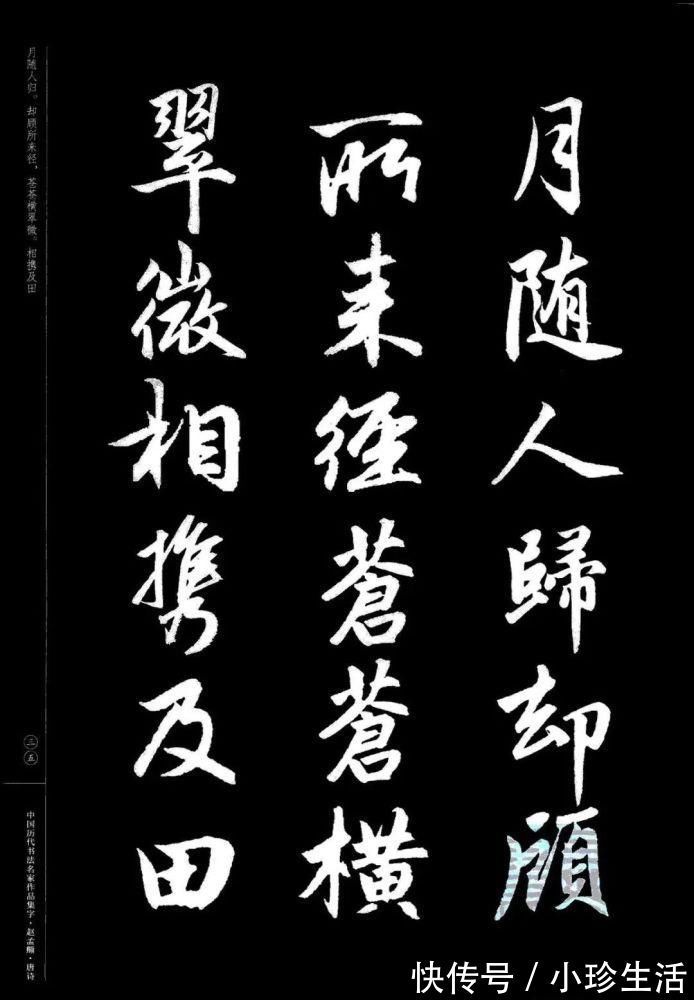 月随人歸却顧
所来徑蒼蒼横
翠微相携及田
月随人归。却顾所来径，苍苍横翠微。相携及田
三五
中国历代书法名家作品集字·赵孟頫·唐诗
快传号/小珍生活